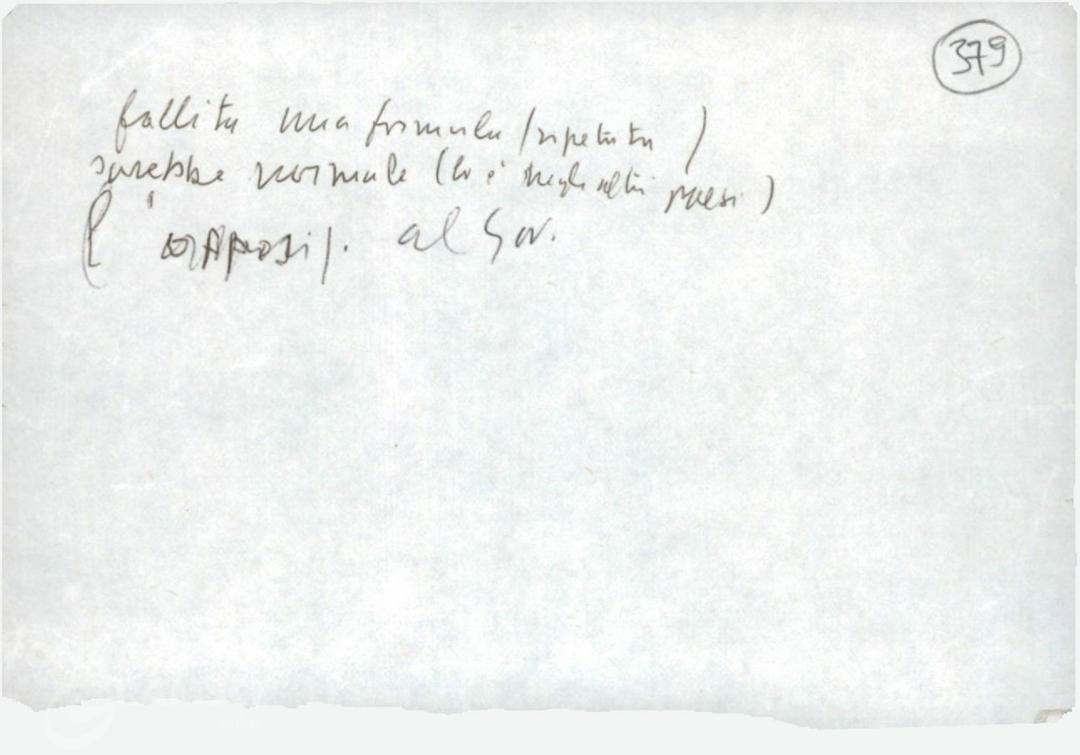 379
fallita una formula (ripetuta)
sarebbe normale (lo è negli altri paesi)
l'opposiz. al Gov.